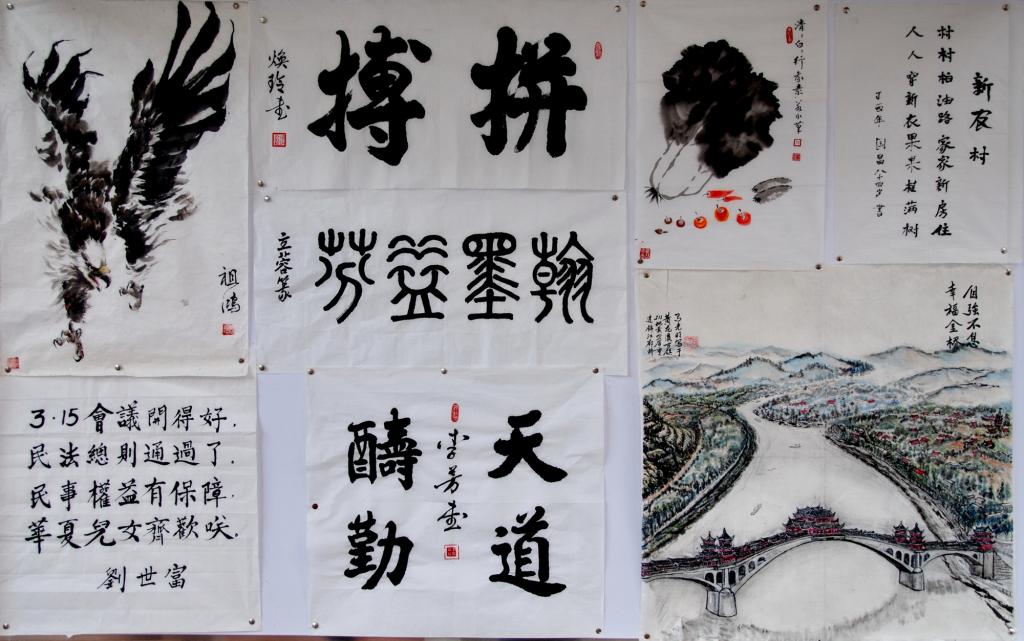 祖鸿
拼搏
焕玲書
翰墨益芬
立蓉篆
3·15會議開得好.
民法總則通過了.
民事權益有保障.
華夏兒女齊歡唉.
劉世富
天道
醻勤
李芳書
新农村
村村柏油路家家新房住
人人穿新衣果果挂满树
丁酉年 国昌八十四岁 书
自強不息
幸福金橋